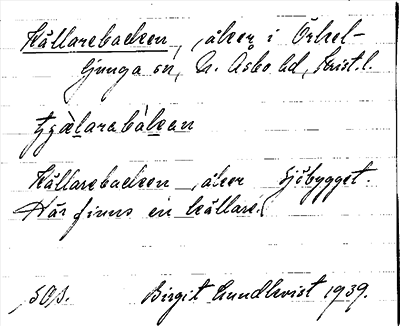 Källarebacken, åker i Örkel-
ljunga sn, N. Åsbo hd, Krist. l.
Källarebacken, åker Sjöbygget.
Här finns en källare.
Birgit Lundkvist 1939.